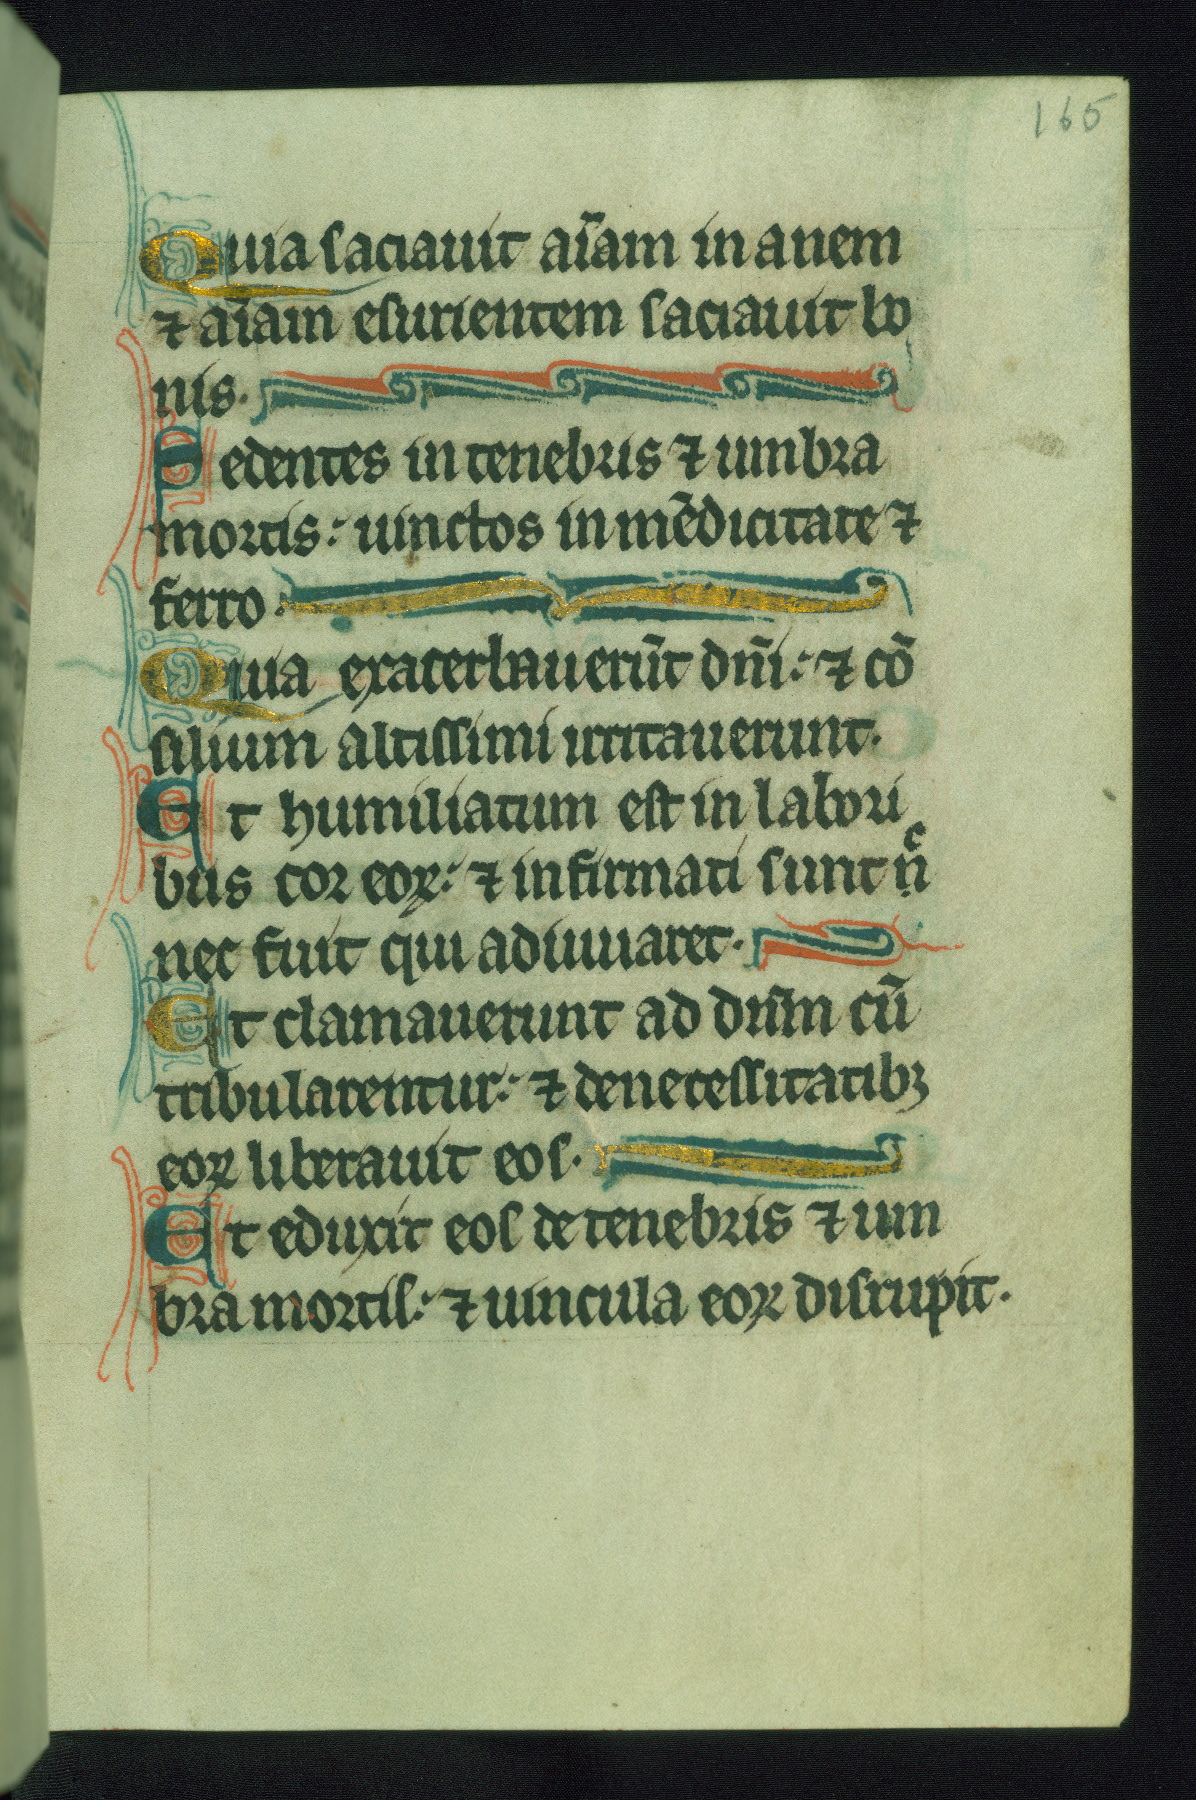 165
Quia saciauit aīam inanem
⁊ aīam esurientem saciauit bo
nis.
Sedentes in tenebris ⁊ umbra
mortis: uinctos in mēdicitate ⁊
ferro.
Quia exacerbauerūt dn̄i: ⁊ cō
silium altissimi irritauerunt.
Et humiliatum est in labori
bus cor eoꝝ: ⁊ infirmati sunt
nec fuit qui adiuuaret.
Et clamauerunt ad dn̄m cū
tribularentur: ⁊ de necessitatibꝫ
eoꝝ liberauit eos.
Et eduxit eos de tenebris ⁊ um
bra mortis: ⁊ uincula eoꝝ disrupit.